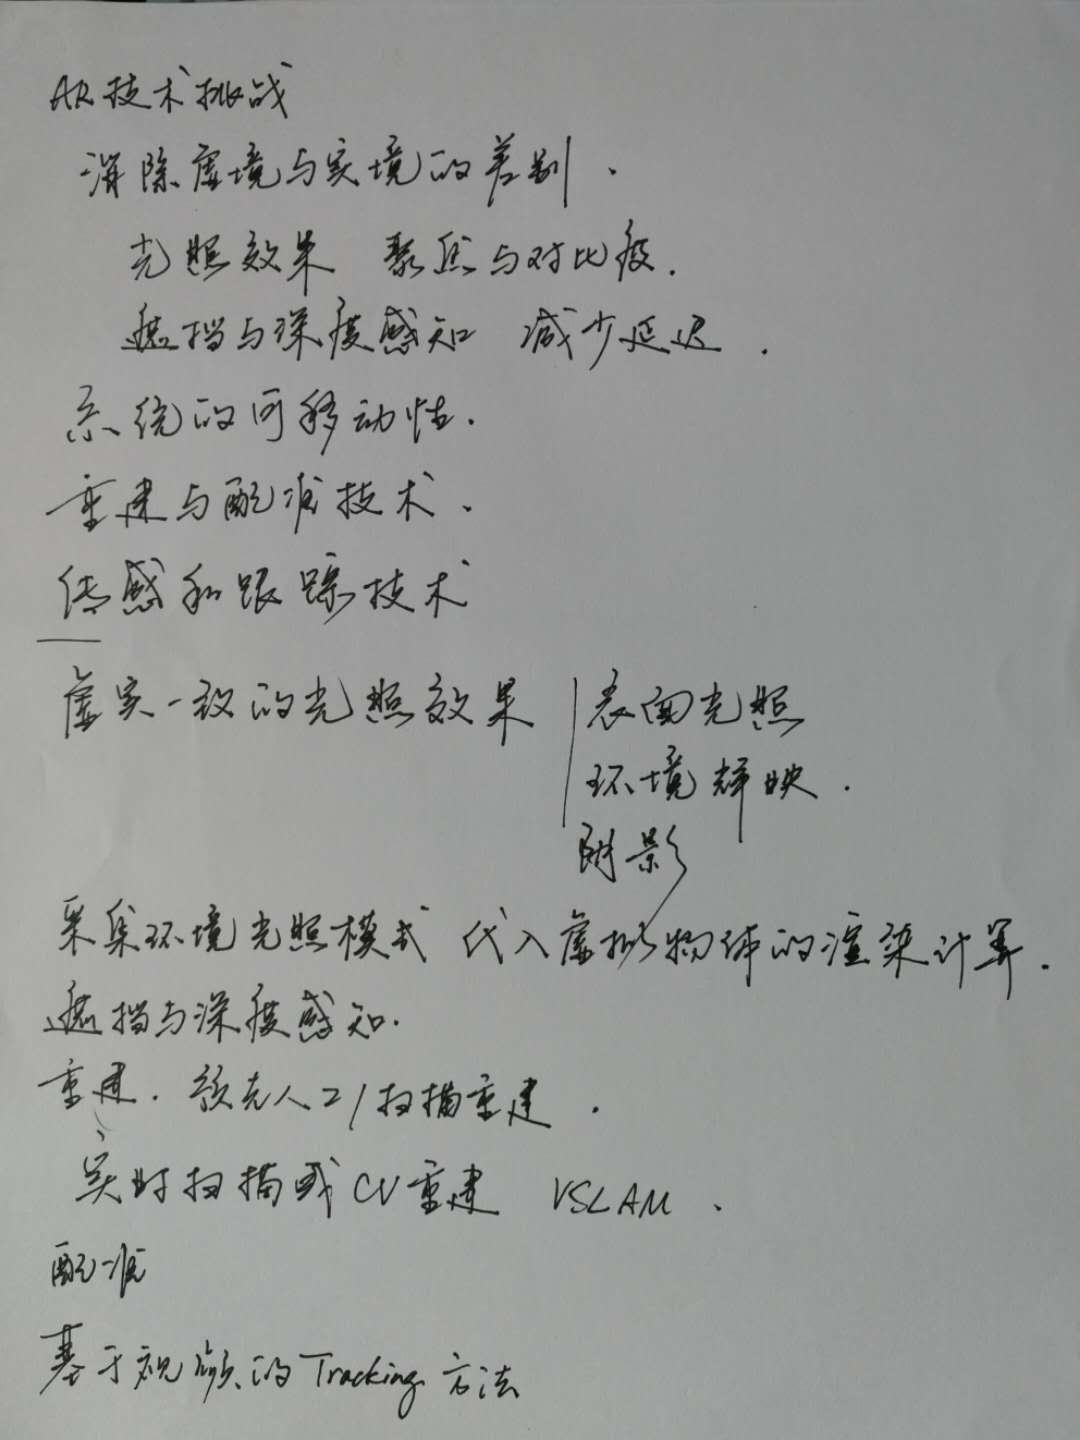 AR技术挑战
消除虚境与实境的差别.
光照效果 聚焦与对比度.
遮挡与深度感知 减少延迟.
系统的可移动性.
重建与配准技术.
传感和跟踪技术
虚实一致的光照效果 表面光照
环境辉映.
阴影
采集环境光照模式 代入虚拟物体的渲染计算.
遮挡与深度感知.
重建. 预先人工/扫描重建.
实时扫描或CV重建 VSLAM.
配准
基于视频的Tracking方法